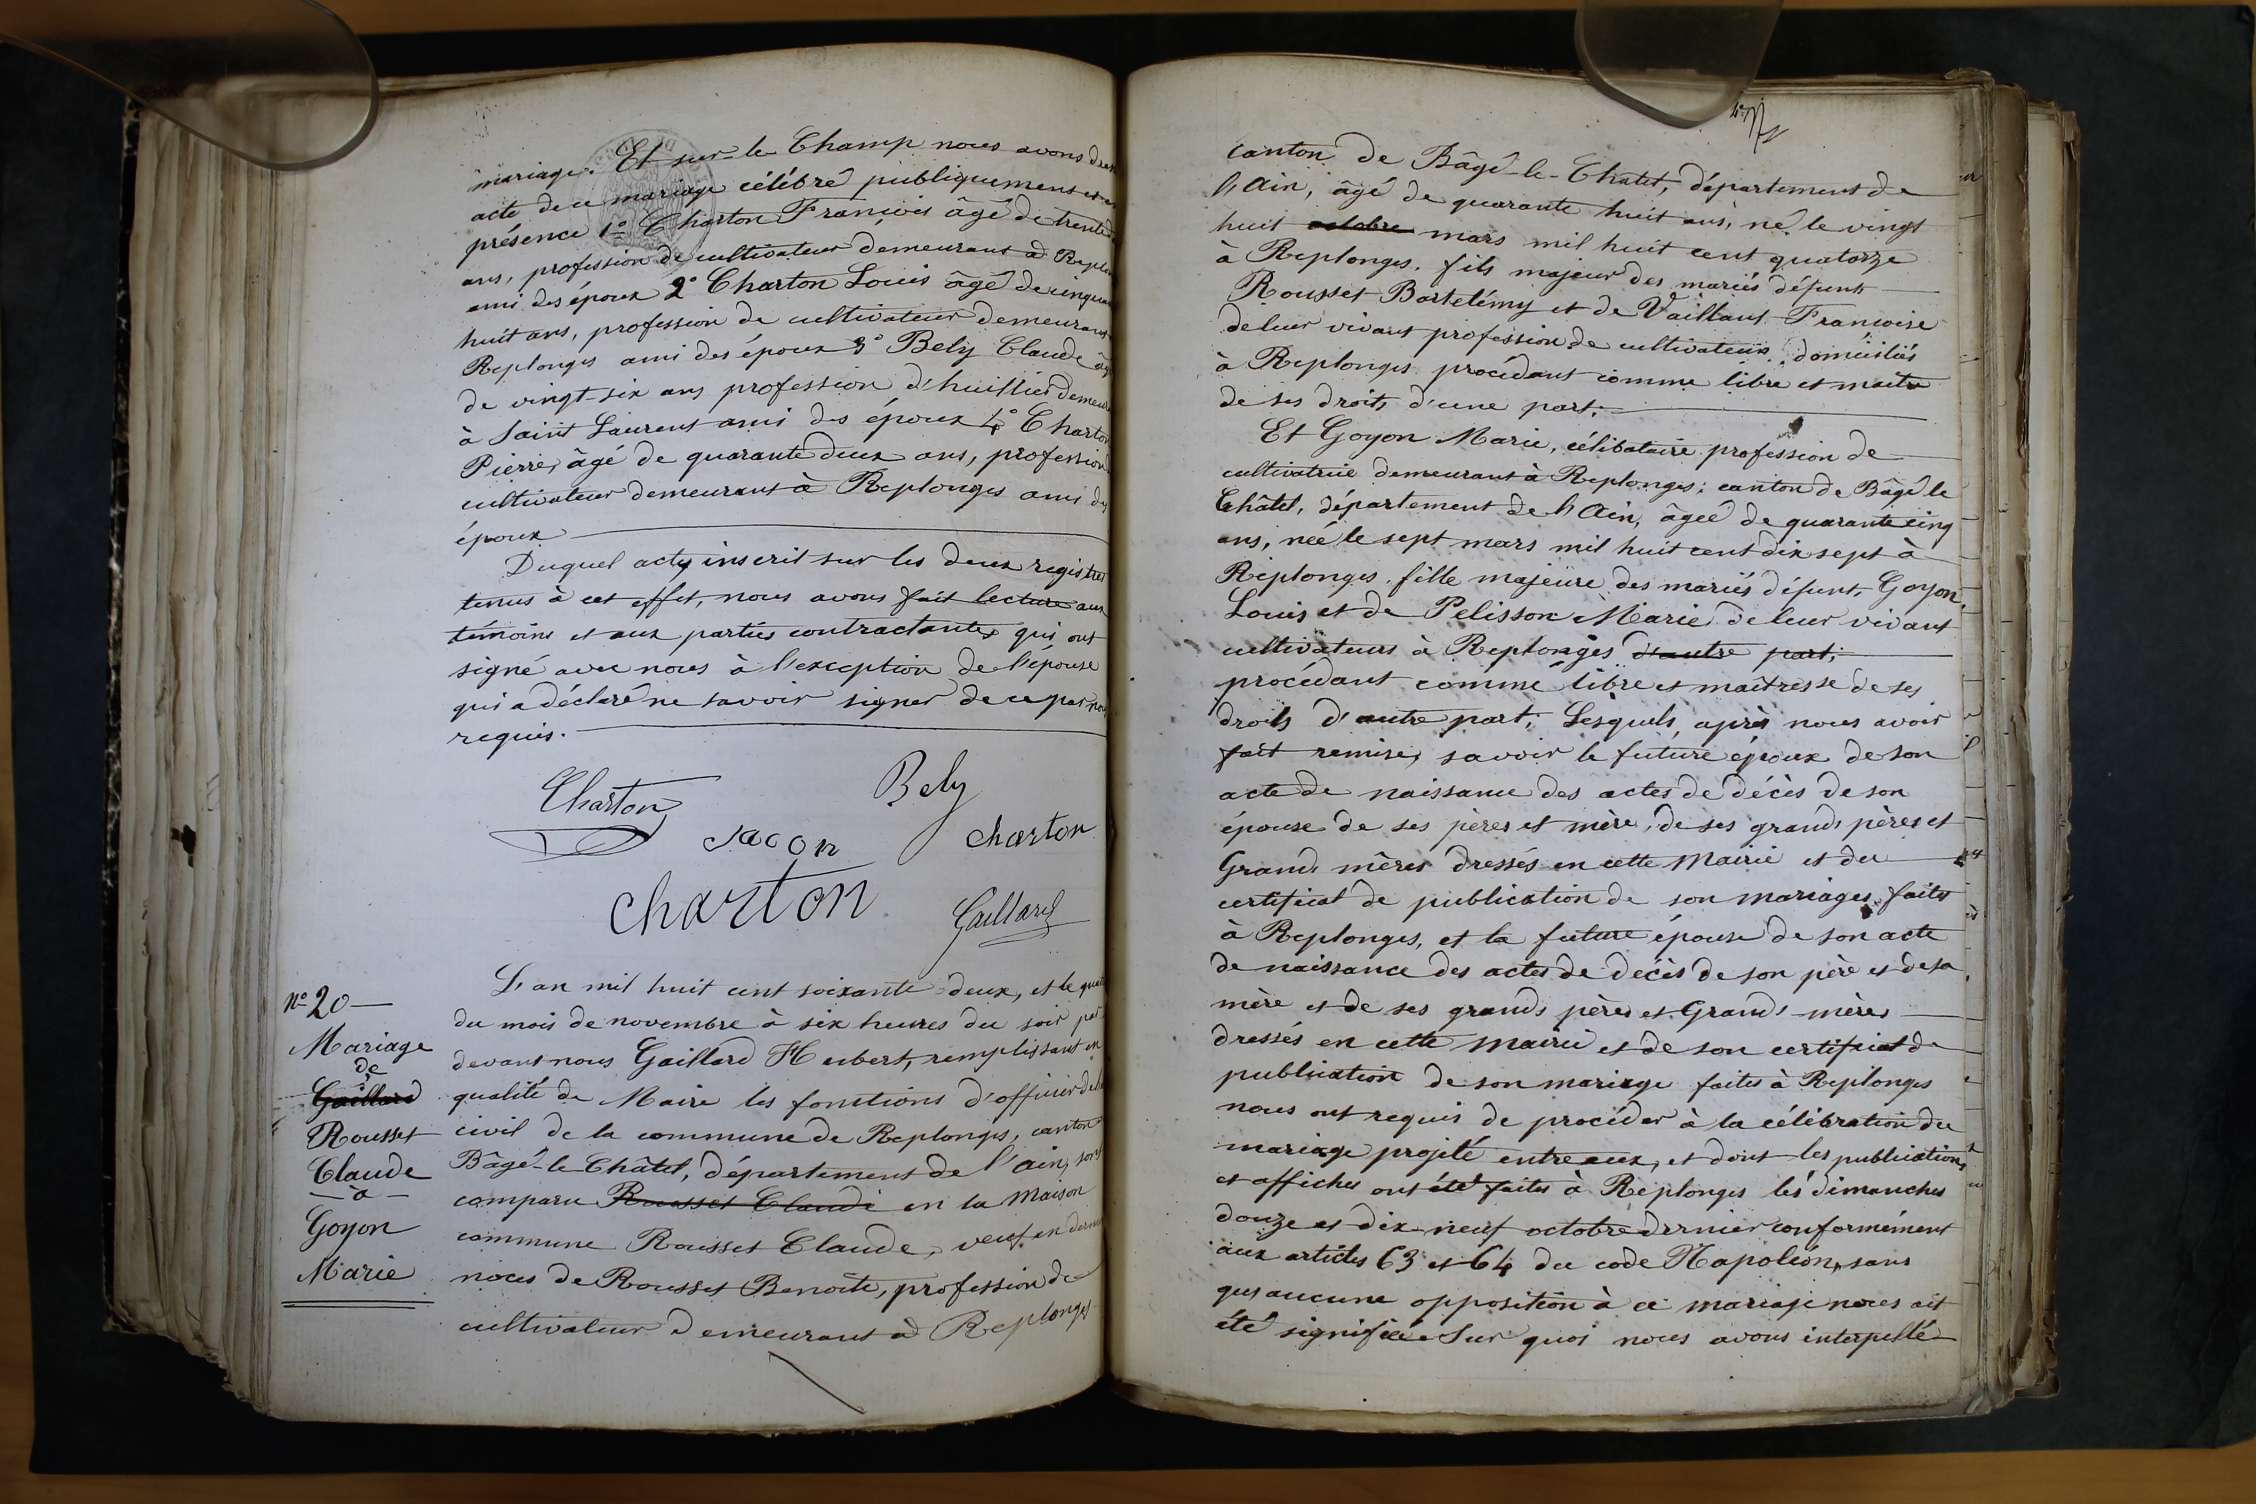 mariage. Et sur-le Champ nous avons
acte de ce mariage célébré publiquement et
présence 1º Charton François âgé de trente
ans, profession de cultivateur demeurant à
ami des époux 2º Charton Louis âgé de
huit ans, profession de cultivateur demeurant
Replonges ami des époux 3º Bely Claude
de vingt-six ans profession d'huissier
à Saint Laurent ami des époux 4º Charton
Pierre, âgé de quarante deux ans, profession
cultivateur demeurant à Replonges ami des
époux
Duquel acte inscrit sur les deux registres
tenus à cet effet, nous avons fait lecture aux
témoins et aux parties contractantes qui ont
signé avec nous à l'exception de l'épouse
qui a déclaré ne savoir signer de ce par nous
requis.
Charton
Bely
Jacon
charton
charton
Gaillard
nº 20
Mariage
de
Gaillard
Rousset
Claude
à
Goyon
Marie
L'an mil huit cent soixante deux, et le
du mois de novembre à six heures du soir par
devant nous Gaillard Heubert, remplissant en
qualité de Maire les fonctions d'officier de
civil de la commune de Replonges, canton
Bâgé-le-Châtel, département de l'ain, sont
comparu Rousset Claude en la Maison
commune Rousset Claude, veuf en
noces de Rousset Benoite, profession de
cultivateur demeurant à Replonges
canton de Bâgé-le-Chatel, département de
l'Ain, âgé de quarante huit ans, né le vingt
huit octobre mars mil huit cent quatorze
à Replonges. fils majeur des mariés défunts
Rousset Bartelémy et de Vaillant Francoise
de leur vivant profession de cultivateurs, domiciliés
à Replonges procédant comme libre et maitre
de ses droits d'une part;
Et Goyon Marie, célibataire profession de
cultivatrice demeurant à Replonges; canton de Bâgé le
Châtel, département de l'Ain, âgée de quarante cinq
ans, née le sept mars mil huit cent dix sept à
Replonges. fille majeure des mariés défunt, Goyon
Louis et de Pelisson Marie de leur vivant
cultivateurs à Replonges d'autre part;
procédant comme libre et maîtresse de ses
droits d'autre part; Lesquels, après nous avoir
fait remise, savoir le future époux de son
acte de naissance des actes de décès de son
épouse de ses pères et mère, de ses grands pères et
Grands mères dressés en cette Mairie et du
certificat de publication de son mariages faites
à Replonges, et la future épouse de son acte
de naissance des actes de décès de son père et de sa
mère et de ses grands pères et Grands mères
dressés en cette mairie et de son certificat de
publication de son mariage faites à Replonges
nous ont requis de procéder à la célébration du
mariage projeté entre eux, et dont les publications
et affiches ont été faites à Replonges les dimanches
douze et dix-neuf octobre dernier conformément
aux articles 63 et 64 du code Napoléon, sans
qu'aucune opposition à ce mariage nous ait
été signifiée. Sur quoi nous avons interpellé